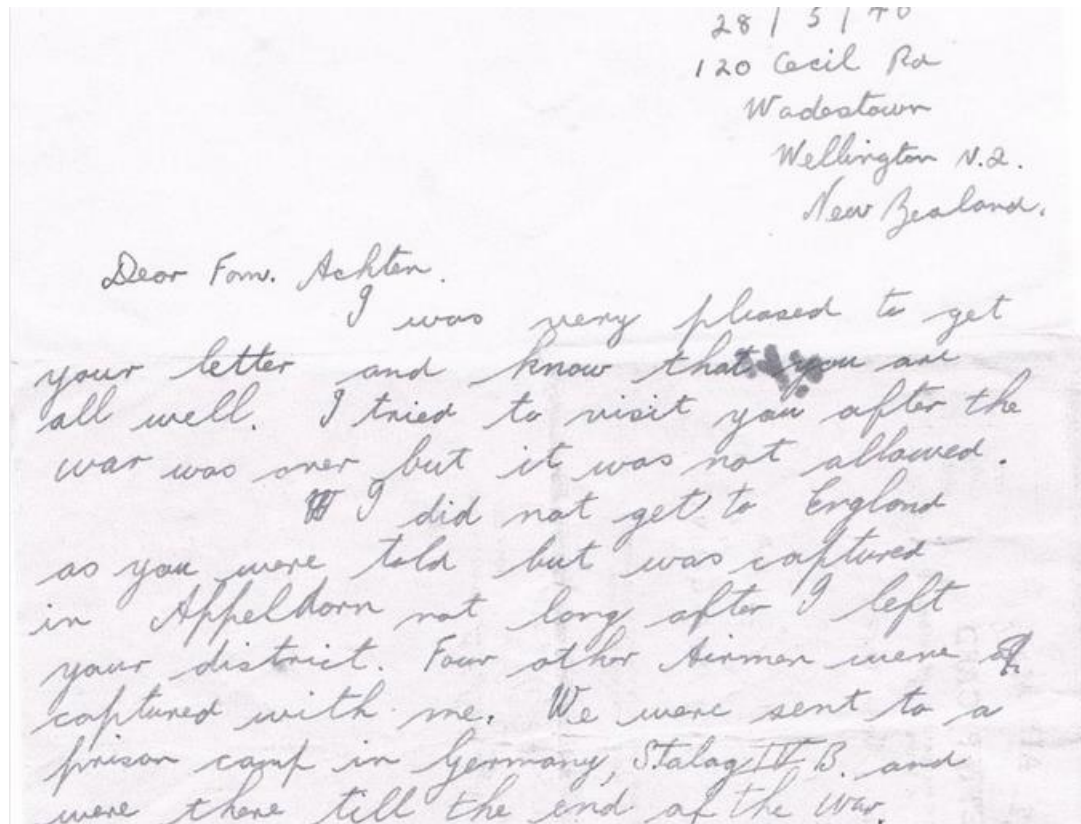 28 / 5 / 46
120 Cecil Rd
Wadestown
Wellington N.Z.
New Zealand.
Dear Fam. Achten.
I was very pleased to get
your letter and know that you are
all well. I tried to visit you after the
war was over but it was not allowed.
I did not get to England
as you were told but was captured
in Appeldorn not long after I left
your district. Four other Airmen were
captured with me. We were sent to a
prison camp in Germany, Stalag IV B. and
were there till the end of the war.